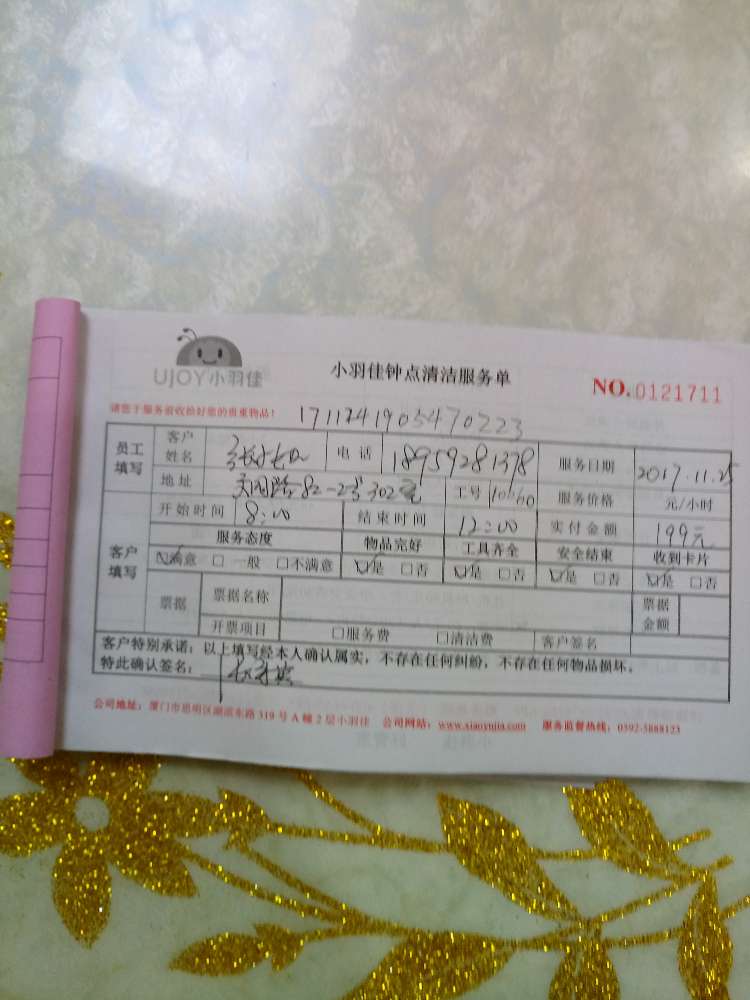 UJOY小羽佳
小羽佳钟点清洁服务单
NO.0121711
请您于服务前收拾好您的贵重物品!
1711241905470223
员工填写 客户姓名 电话 18959281378 服务日期 2017.11.25
地址 82-2号302室 工号 服务价格 元/小时
客户填写 开始时间 8:00 结束时间 12:00 实付金额 199元
服务态度 物品完好 工具齐全 安全结束 收到卡片
☑满意 □一般 □不满意 ☑是 □否 ☑是 □否 ☑是 □否 ☑是 □否
票据 票据名称 票据金额
开票项目 □服务费 □清洁费 客户签名
客户特别承诺:以上填写经本人确认属实,不存在任何纠纷,不存在任何物品损坏。
特此确认签名:
公司地址:厦门市思明区湖滨东路319号A幢2层小羽佳 公司网站:www.xiaoyujia.com 服务监督热线:0592-5888123